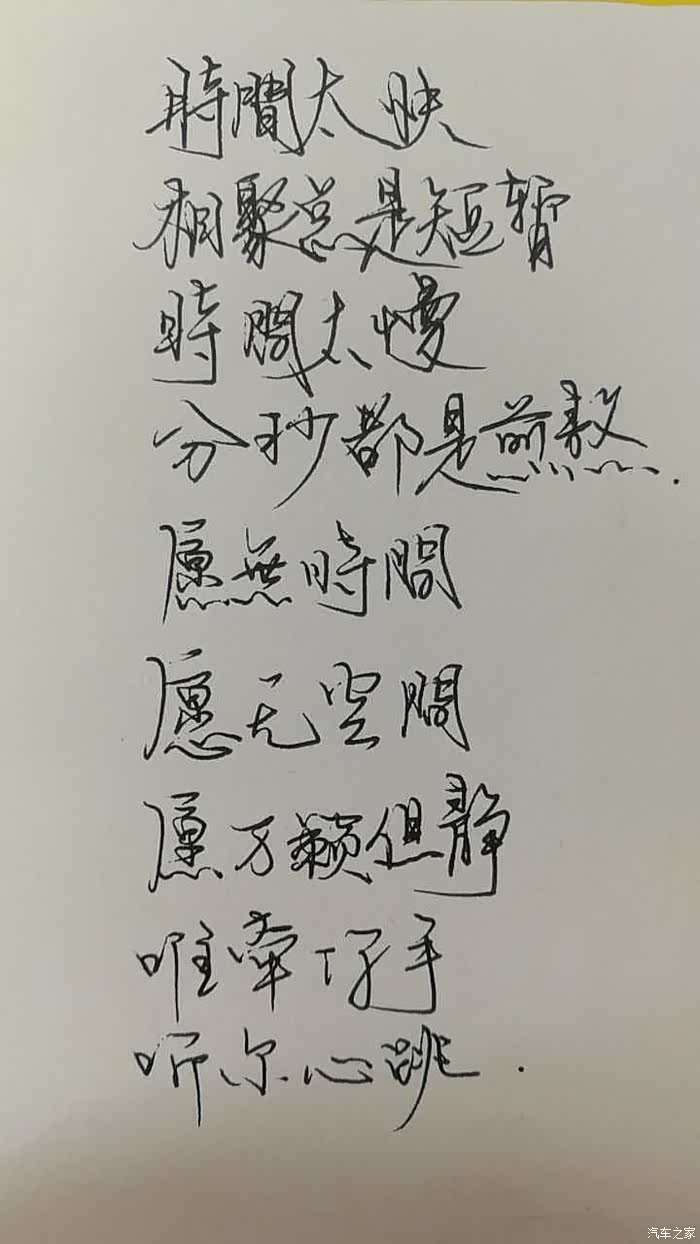 時間太快
相聚总是短暫
時間太慢
分秒都是煎熬.
愿無時間
愿无空間
愿万籁俱静
唯牵仔手
听尔心跳.
汽车之家